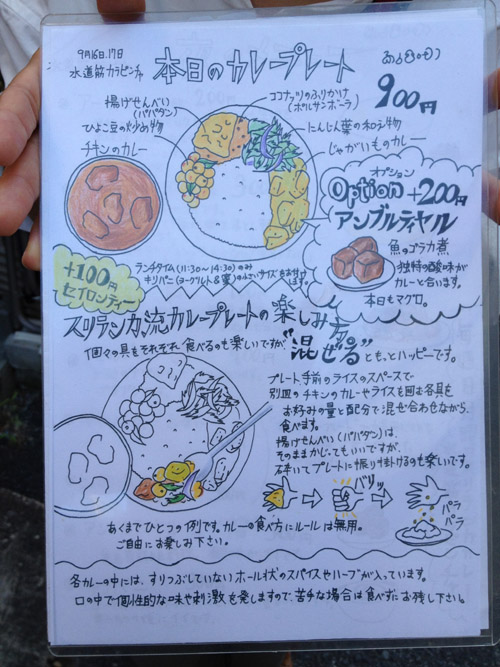 9月16日.17日
水道筋カラピンチャ
本日のカレープレート
900円
揚げせんべい
(パパダン)
ひよこ豆の炒め物
チキンのカレー
ココナッツのふりかけ
(ポルサンボーラ)
にんじん葉の和え物
じゃがいものカレー
オプション
Option +200円
アンブルティヤル
魚のゴラカ煮
独特の酸味が
カレーと合います。
本日もマグロ。
+100円
セイロンティー
ランチタイム(11:30〜14:30)のみ
キリパニ(ヨーグルト&蜜)の小さいサイズをお付け
します。
スリランカ流カレープレートの楽しみ方。
個々の具をそれぞれ食べるのも楽しいですが、"混ぜる"ともっとハッピーです。
プレート手前のライスのスペースで
別皿のチキンのカレーやライスを囲む各具を
お好みの量と配分で混ぜ合わせながら、
食べます。
揚げせんべい(パパダン)は、
そのままかじってもいいですが、
砕いてプレートに振り掛けるのも楽しいです。
バリッ
パラ
パラ
あくまでひとつの例です。カレーの食べ方にルールは無用。
ご自由にお楽しみ下さい。
各カレーの中には、すりつぶしていないホール状のスパイスやハーブが入っています。
口の中で個性的な味や刺激を発しますので、苦手な場合は食べずにお残し下さい。